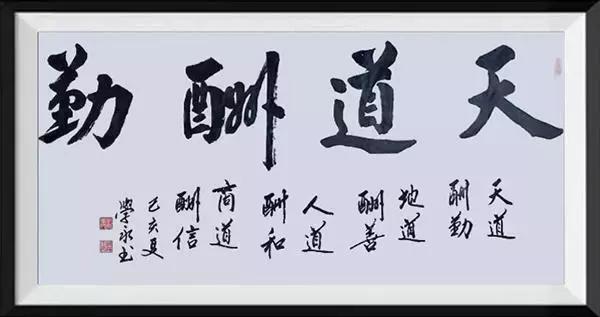 天道酬勤
天道
酬勤
地道
酬善
人道
酬和
商道
酬信
己亥夏
学永书